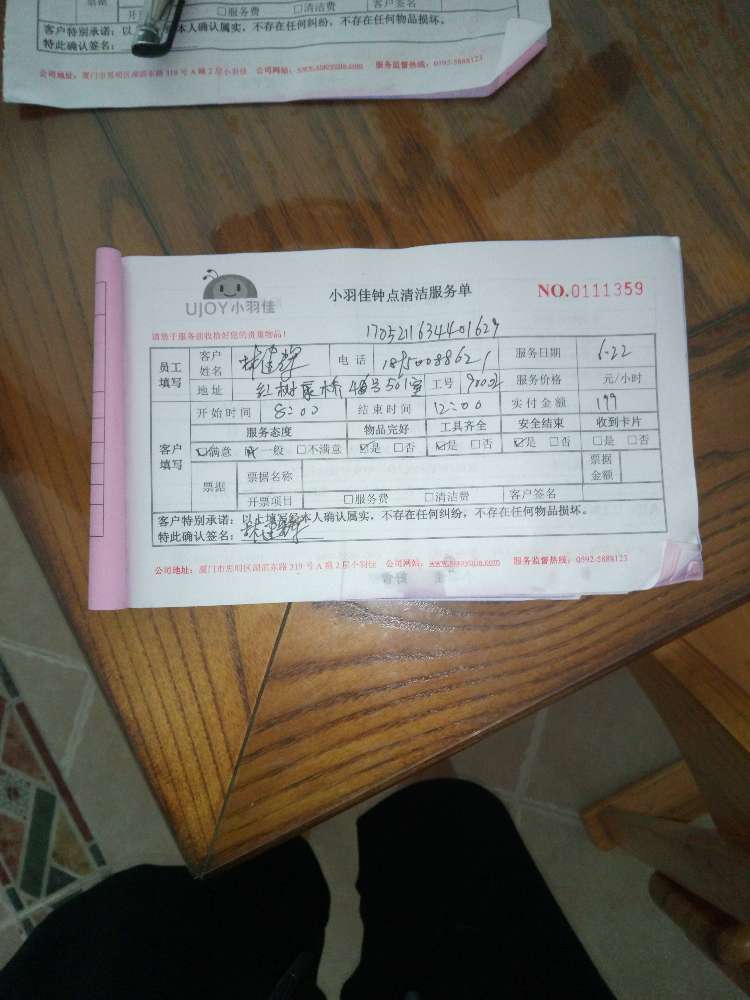 票据
开 □服务费 □清洁费 客户签名
客户特别承诺：以 本人确认属实，不存在任何纠纷，不存在任何物品损坏。
特此确认签名：
公司地址：厦门市思明区湖滨东路 319 号 A 幢 2 层小羽佳 公司网站： 服务监督热线：0592-5888123
UJOY小羽佳
小羽佳钟点清洁服务单
NO.0111359
请您于服务前收拾好您的贵重物品！
1705211634401629
员工填写 客户姓名 电话 服务日期 6.22
地址 红树康桥 号501室 工号 服务价格 元/小时
客户填写 开始时间 8:00 结束时间 12:00 实付金额 199
服务态度 物品完好 工具齐全 安全结束 收到卡片
☑满意 ☑一般 □不满意 ☑是 □否 ☑是 □否 ☑是 □否 □是 □否
票据 票据名称 票据金额
开票项目 □服务费 □清洁费 客户签名
客户特别承诺：以上填写经本人确认属实，不存在任何纠纷，不存在任何物品损坏。
特此确认签名：
公司地址：厦门市思明区湖滨东路 319 号 A 幢 2 层小羽佳 公司网站： 服务监督热线：0592-5888123